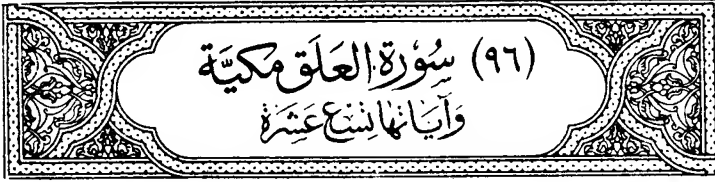 (٩٦) سُورَةِ العَلَق مَكيَّة
وَآيَاتهَا تِسْعَ عَشَرَة